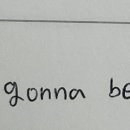 gonna be